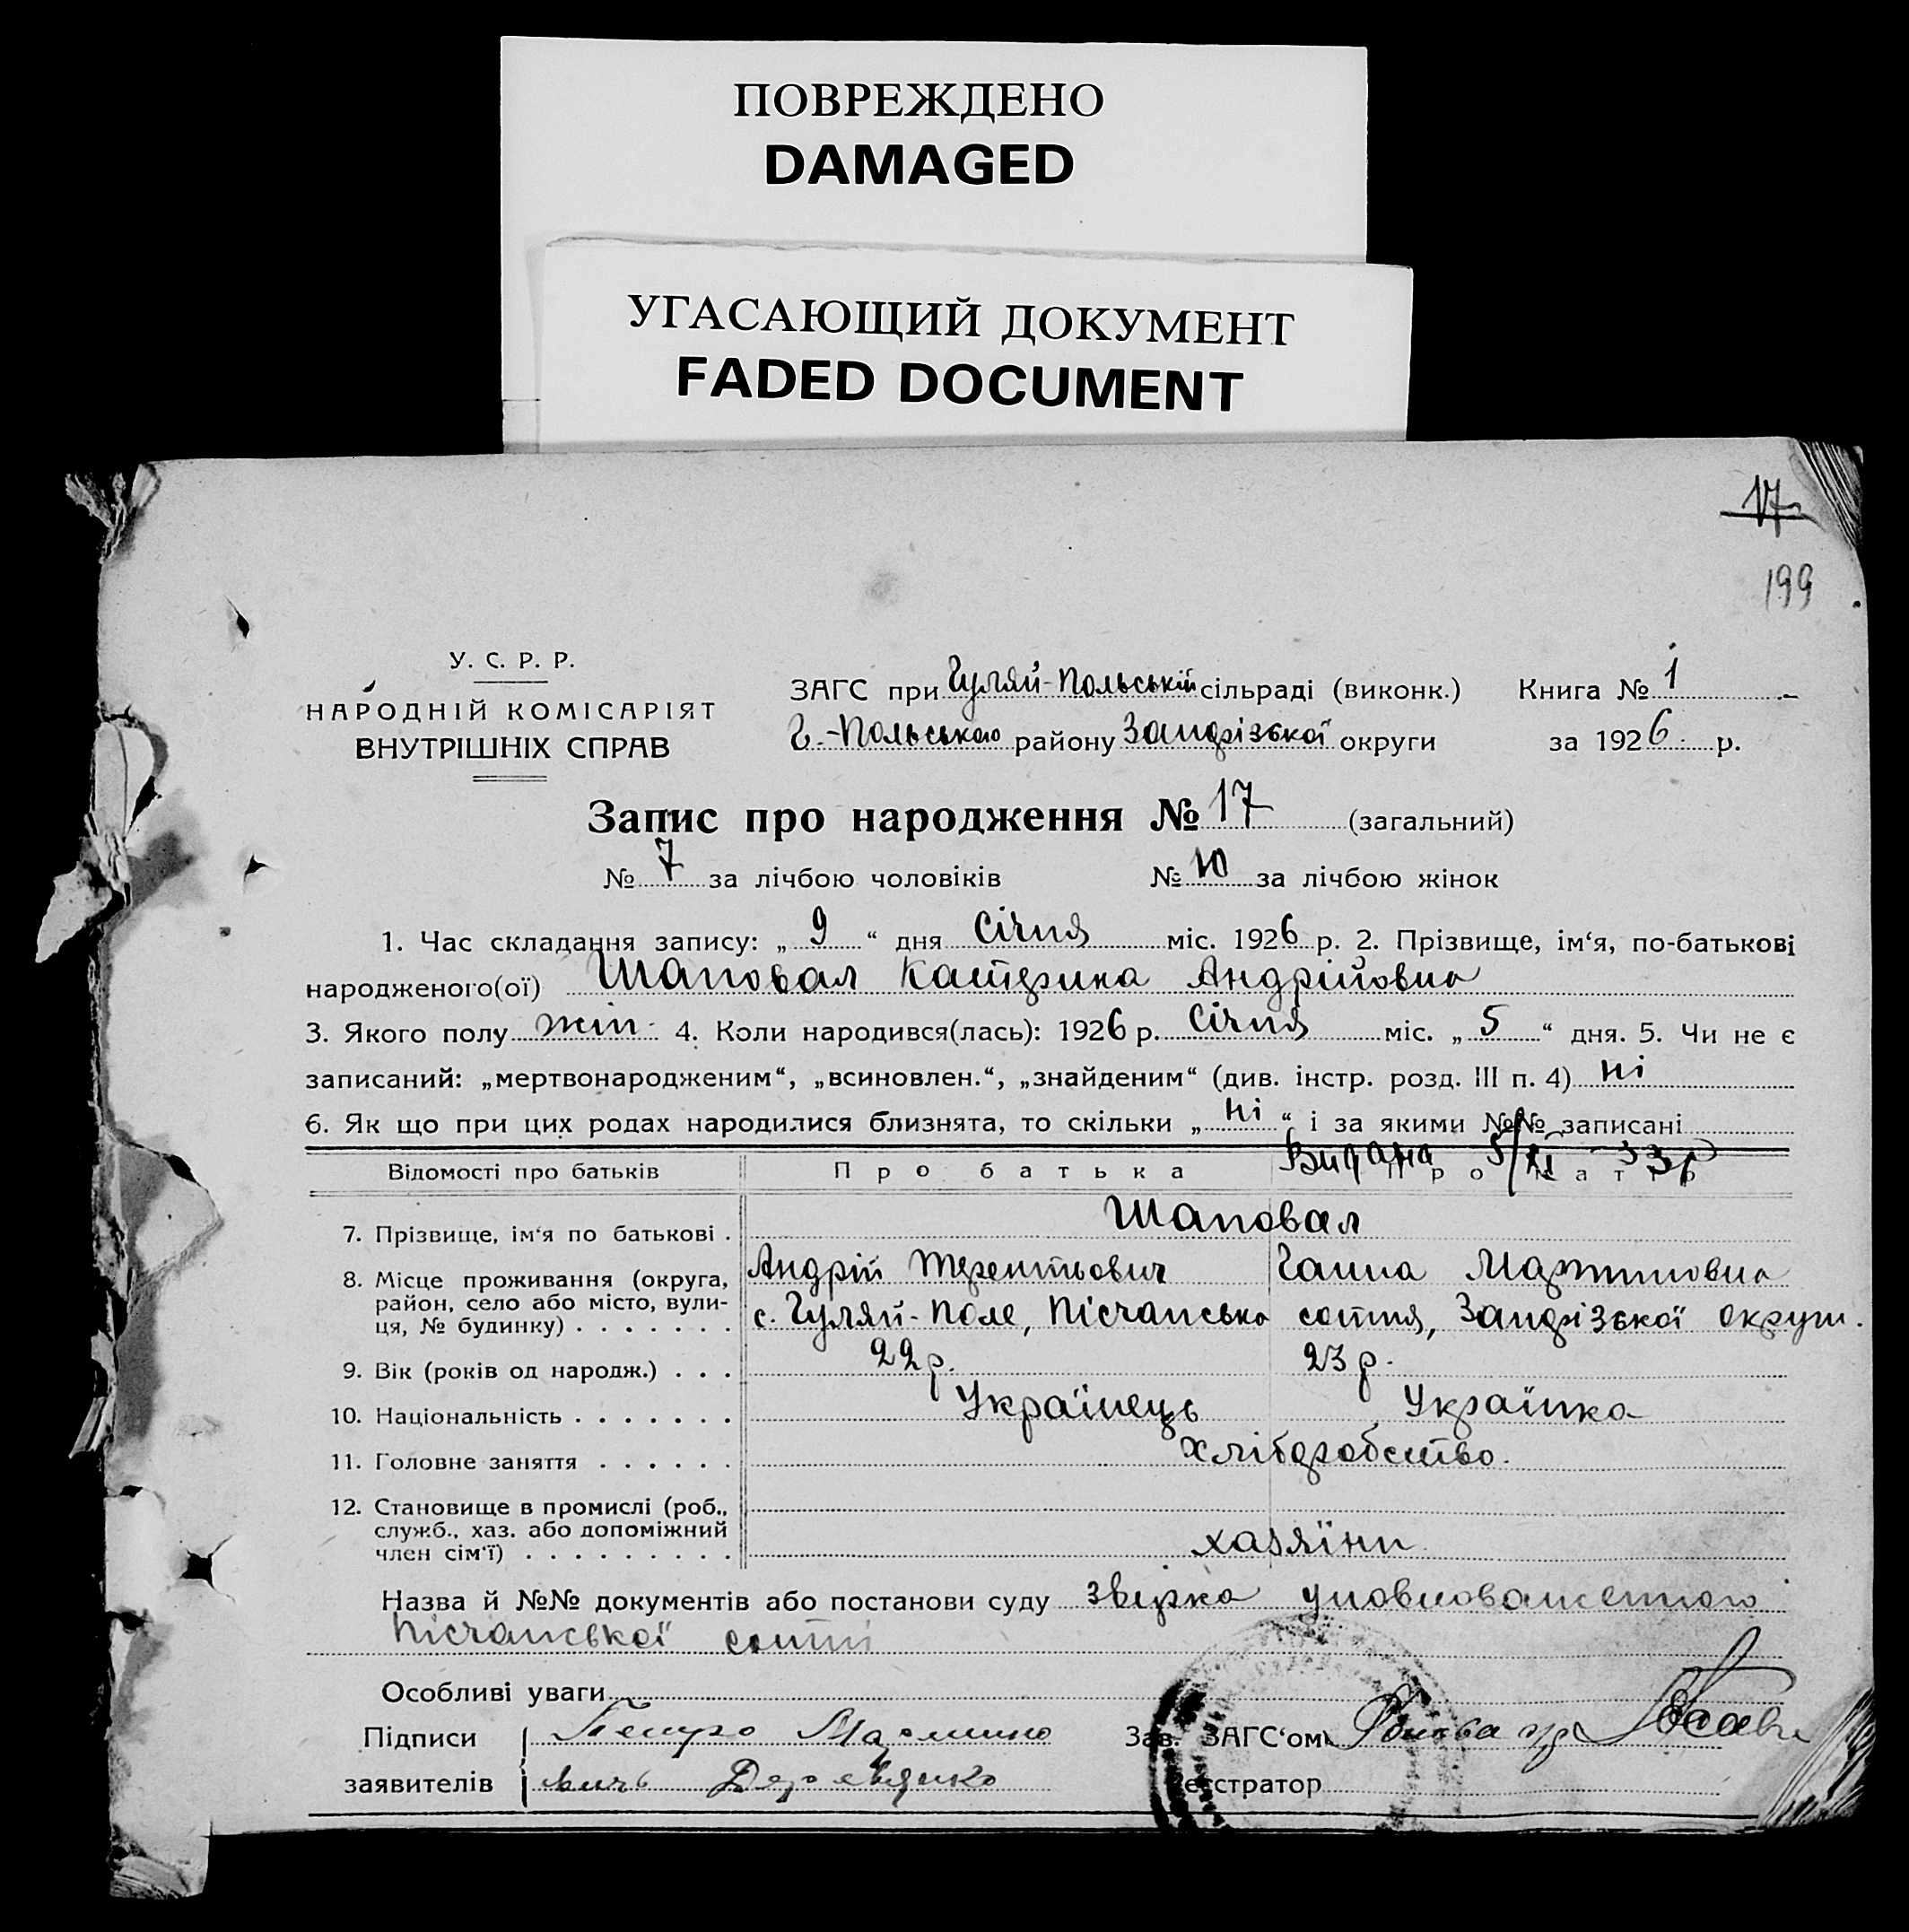 ПОВРЕЖДЕНО
DAMAGED
УГАСАЮЩИЙ ДОКУМЕНТ
FADED DOCUMENT
17
199
У. С. Р. Р.
НАРОДНІЙ КОМІСАРІЯТ
ВНУТРІШНІХ СПРАВ
ЗАГС при Гуляй-Польській сільраді (виконк.) Книга № 1
Г.-Польського району Запорізької округи за 1926 р.
Запис про народження № 17 (загальний)
№ 7 за лічбою чоловіків № 10 за лічбою жінок
1. Час складання запису: „ 9 “ дня Січня міс. 1926 р. 2. Прізвище, ім‘я, по-батькові
народженого(ої) Шаповал Катерина Андрійовна
3. Якого полу жін. 4. Коли народився(лась): 1926 р. Січня міс. „ 5 “ дня. 5. Чи не є
записаний: „мертвонародженим“, „всиновлен.“, „знайденим“ (див. інстр. розд. III п. 4) ні
6. Як що при цих родах народилися близнята, то скільки „ ні “ і за якими №№ записані
Видана 5/XI 33р
Відомості про батьків Про батька Про матір
7. Прізвище, ім‘я по батькові . Шаповал
Андрій Терентьович Ганна Мартиновна
8. Місце проживання (округа,
район, село або місто, вули-
ця, № будинку) . . . . . . . с. Гуляй-Поле, Пісчанська сотня, Запорізької округи.
9. Вік (років од народж.) . . . 22 р. 23 р.
10. Національність . . . . . . . Українець Українка
11. Головне заняття . . . . . . Хліборобство.
12. Становище в промислі (роб.,
служб., хаз. або допоміжний
член сім‘ї) . . . . . . . . . хазяїни
Назва й №№ документів або постанови суду звірка уповноваженного
Пісчанської сотні
Особливі уваги
Підписи Петро Мартино Зав. ЗАГС‘ом
заявителів вичь Деревянко Реєстратор